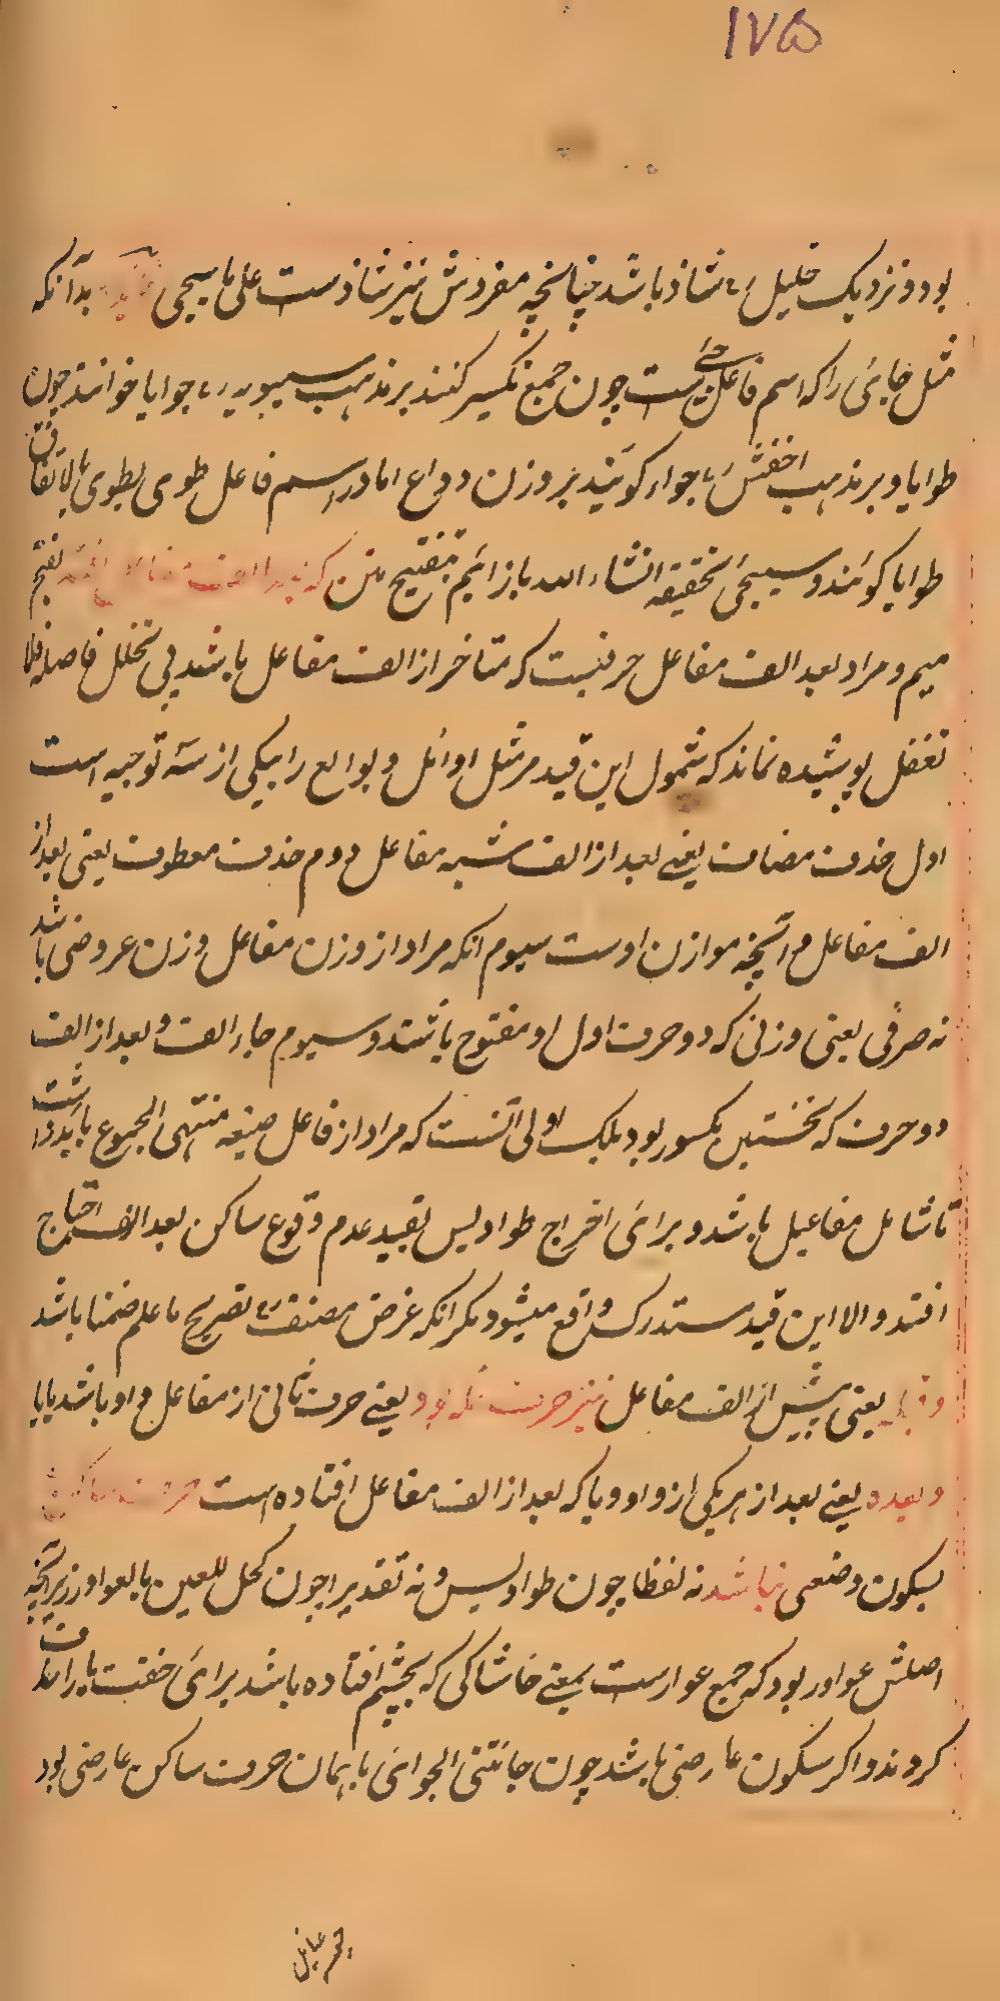 ١٧۵
بود و نزدیک خلیل رح شاذ باشد چنانچه مفردش نیز شاذ ست علی ما سیجی بدآنکه
مثل جائی را که اسم فاعل جئ ست چون جمع تکسیر کنند بر مذهب سیبویه رح جوایا خوانند چون
طوایا و بر مذهب اخفش رح جواء گویند بر وزن دواع اما در اسم فاعل طوی یطوی بالاتفاق
طوایا گویند و سیجئ تحقیقه انشاء الله بدانکه بعد الف مفاعل بفتح
میم و مراد بعد الف مفاعل حرفیست که متاخر از الف مفاعل باشد بی تخلل فاصله فلا
تغفل پوشیده نماند که شمول این قید مر مثل اوائل و بوایع را بیکی از سه توجیه است
اول حذف مضاف یعنی بعد از الف شبه مفاعل دوم حذف معطوف یعنی بعد از
الف مفاعل و آنچه موازن اوست سیوم آنکه مراد از وزن مفاعل وزن عروضی باشد
نه صرفی یعنی وزنی که دو حرف اول او مفتوح باشند و سیوم جاء الف و بعد از الف
دو حرف که نخستین مکسور بود بلکه اولی آنست که مراد از فاعل صیغه منتهی الجموع باید داشت
تا شامل مفاعیل باشد و برای اخراج طواویس بقید عدم وقوع ساکن بعد الف احتیاج
افتد و الا این قید مستدرک واقع میشود مگر آنکه غرض مصنف رح تصریح ما علم ضمنا باشد
و یعنی پیش از الف مفاعل نیز حرف علة بود یعنی حرف ثانی از مفاعل واو باشد یا یا
و بعده یعنی بعد از هر یکی از واو و یا که بعد از الف مفاعل افتاده است حرف ساکن
بسکون وضعی نباشد نه لفظا چون طواویس و نه تقدیرا چون کحل للعین بالعواور زیرآنچه
اصلش عواویر بود که جمع عوار ست بمعنی خاشاکی که بچشم افتاده باشد برای خفت یا را حذف
کردند و اگر سکون عارضی باشد چون جائتنی الجوائی با همان حرف ساکن عارضی بود